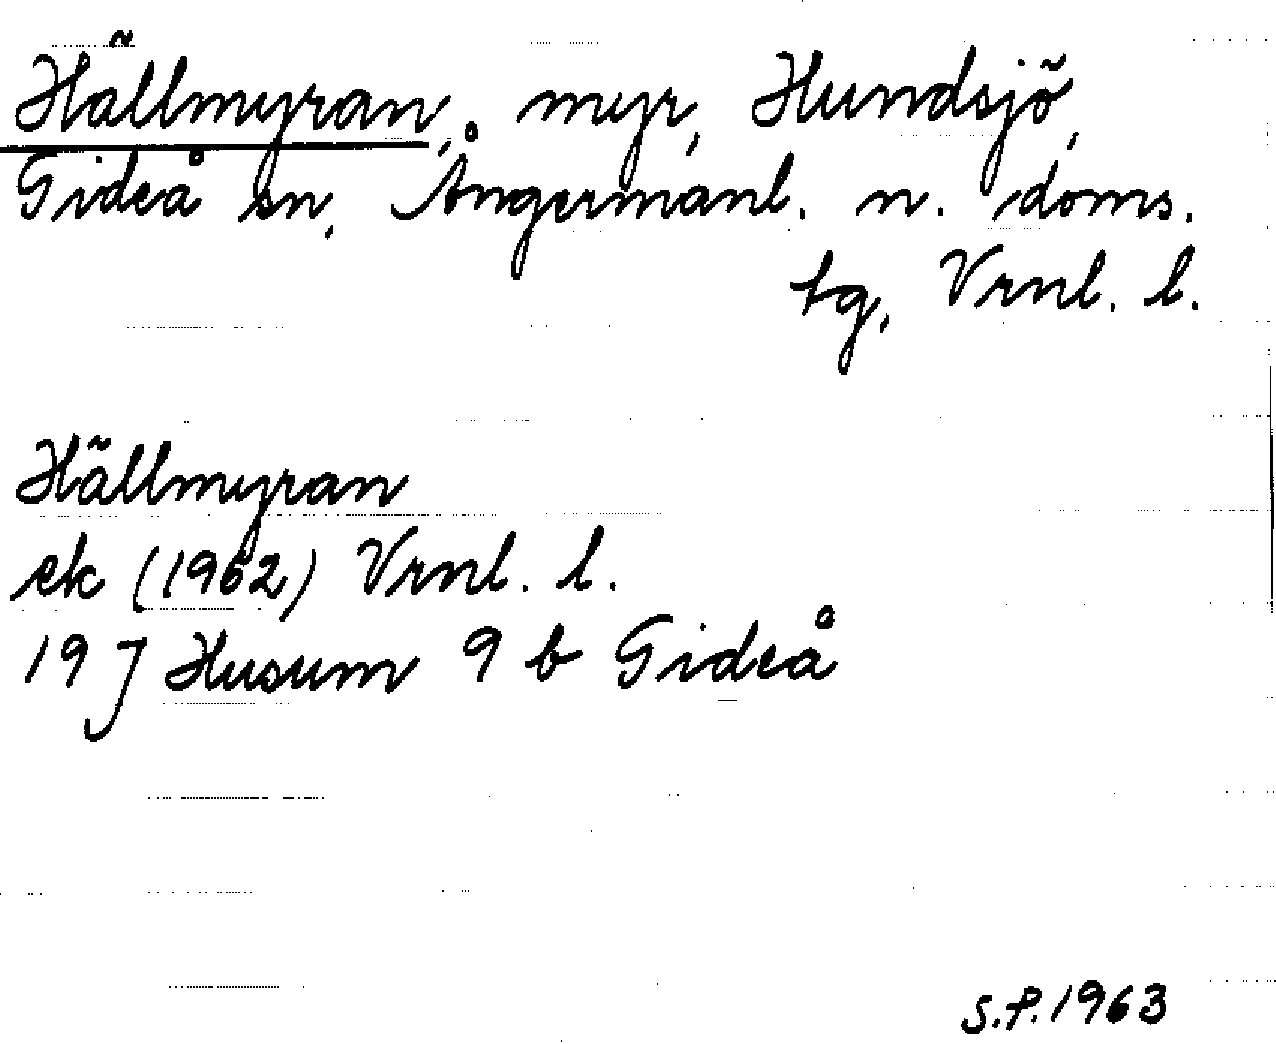 Hällmyran, myr, Hundsjö,
Gideå sn, Ångermanl. n. doms.
tg, Vrnl. l.
Hällmyran
ek (1962) Vrnl. l.
19 J Husum 9 b Gideå
S.P. 1963